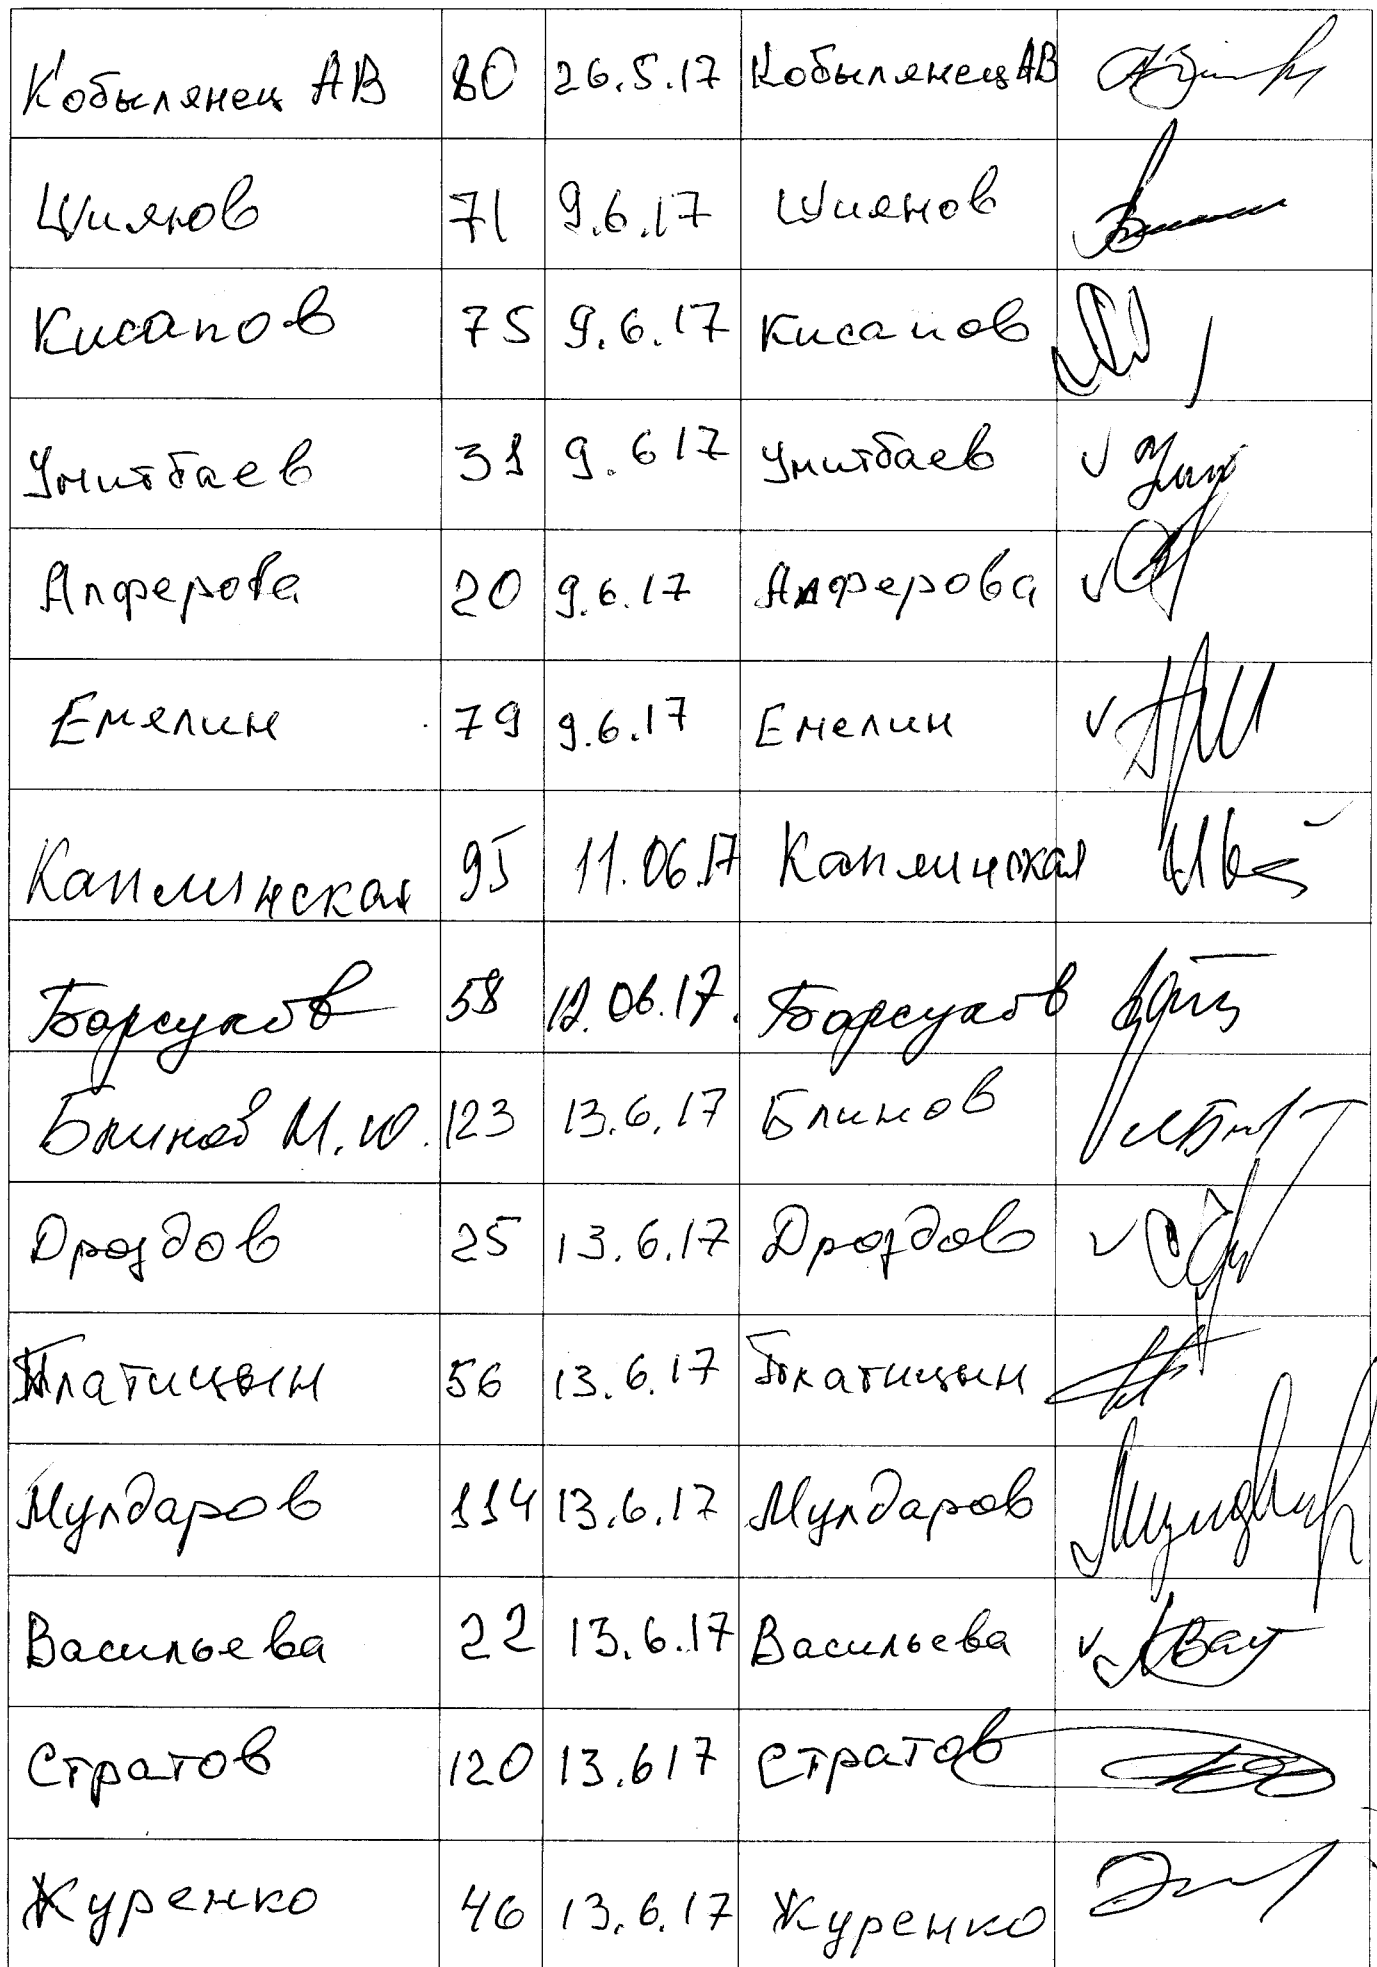 Кобылянец АВ 80 26.5.17 Кобылянец АВ
Шиянов 71 9.6.17 Шиянов
Кисапов 75 9.6.17 Кисапов
Умитбаев 31 9.617 Умитбаев
Алферова 20 9.6.17 Алферова
Емелин 79 9.6.17 Емелин
Каплинская 95 11.06.17 Каплинская
Барсуков 58 12.06.17. Барсуков
Блинов М.Ю. 123 13.6.17 Блинов
Дроздов 25 13.6.17 Дроздов
Платицын 56 13.6.17 Платицын
Мулдаров 114 13.6.17 Мулдаров
Васильева 22 13.6.17 Васильева
Стратов 120 13.617 Стратов
Журенко 46 13.6.17 Журенко